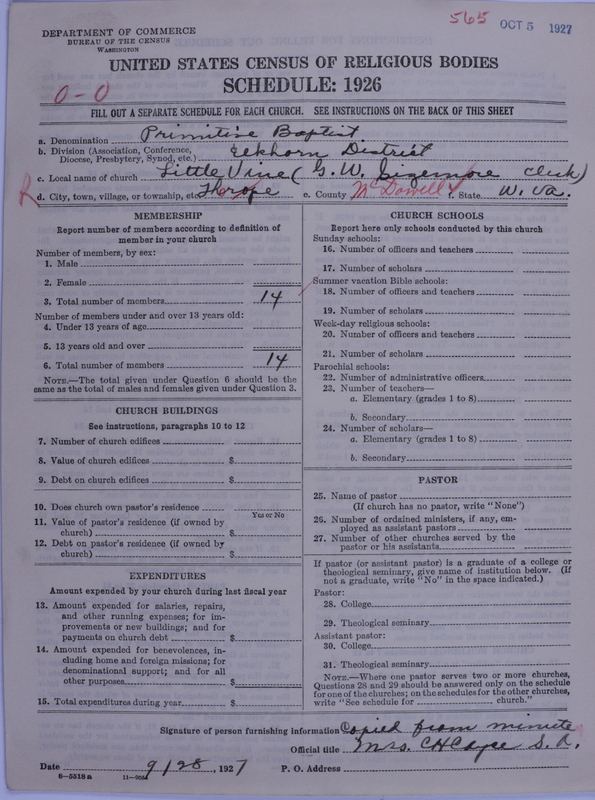 565 OCT 5 1927
DEPARTMENT OF COMMERCE
BUREAU OF THE CENSUS
WASHINGTON
UNITED STATES CENSUS OF RELIGIOUS BODIES
SCHEDULE: 1926
0-0
FILL OUT A SEPARATE SCHEDULE FOR EACH CHURCH. SEE INSTRUCTIONS ON THE BACK OF THIS SHEET
a. Denomination Primitive Baptist
b. Division (Association, Conference, Diocese, Presbytery, Synod, etc.) Elkhorn District
c. Local name of church Little Vine (G. W. Sizemore Clerk)
R d. City, town, village, or township, etc. Thorpe e. County McDowell f. State W. Va.
MEMBERSHIP
Report number of members according to definition of
member in your church
Number of members, by sex:
1. Male
2. Female
3. Total number of members 14
Number of members under and over 13 years old:
4. Under 13 years of age
5. 13 years old and over
6. Total number of members 14
NOTE.—The total given under Question 6 should be
same as the total of males and females given under Question 3.
CHURCH BUILDINGS
See instructions, paragraphs 10 to 12
7. Number of church edifices
8. Value of church edifices $
9. Debt on church edifices $
10. Does church own pastor's residence
Yes or No
11. Value of pastor's residence (if owned by
church) $
12. Debt on pastor's residence (if owned by
church) $
EXPENDITURES
Amount expended by your church during last fiscal year
13. Amount expended for salaries, repairs,
and other running expenses; for im-
provements or new buildings; and for
payments on church debt $
14. Amount expended for benevolences, in-
cluding home and foreign missions; for
denominational support; and for all
other purposes $
15. Total expenditures during year $
CHURCH SCHOOLS
Report here only schools conducted by this church
Sunday schools:
16. Number of officers and teachers
17. Number of scholars
Summer vacation Bible schools:
18. Number of officers and teachers
19. Number of scholars
Week-day religious schools:
20. Number of officers and teachers
21. Number of scholars
Parochial schools:
22. Number of administrative officers
23. Number of teachers—
a. Elementary (grades 1 to 8)
b. Secondary
24. Number of scholars—
a. Elementary (grades 1 to 8)
b. Secondary
PASTOR
25. Name of pastor
(If church has no pastor, write "None")
26. Number of ordained ministers, if any, em-
ployed as assistant pastors
27. Number of other churches served by the
pastor or his assistants
If pastor (or assistant pastor) is a graduate of a college or
theological seminary, give name of institution below. (If
not a graduate, write "No" in the space indicated.)
Pastor:
28. College
29. Theological seminary
Assistant pastor:
30. College
31. Theological seminary
NOTE.—Where one pastor serves two or more churches,
Questions 28 and 29 should be answered only on the schedule
for one of the churches; on the schedules for the other churches,
write "See schedule for church."
Signature of person furnishing information Copied from minute
Official title Mrs. C H S. A.
Date 9/28, 1927 P. O. Address
6-5518a